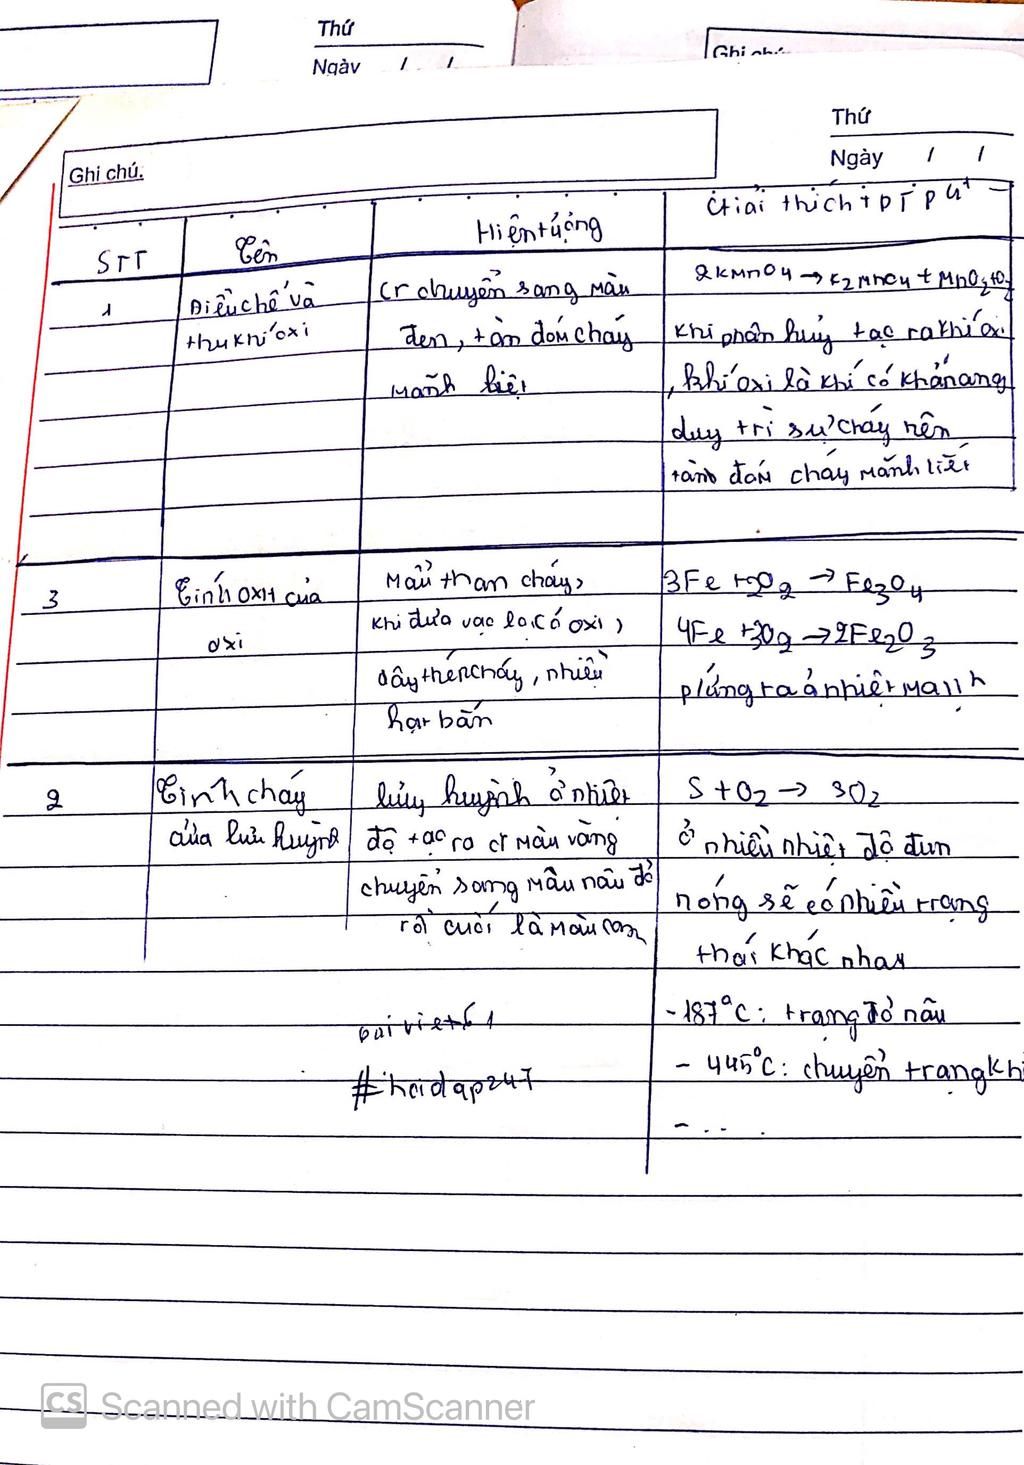 Thứ
Ngày / /
Ghi chú.
Thứ
Ngày / /
Ghi chú.
STT
Tên
Hiện tượng
Giải thích + PTPU
1
Điều chế và
thu khí oxi
Cr chuyển sang màu
đen, tàn đóm cháy
mãnh liệt
2KMnO4 → K2MnO4 + MnO2 + O2
khi phân huỷ tạo ra khí oxi
, khí oxi là khí có khả năng
duy trì sự cháy nên
tàn đóm cháy mãnh liệt
3
Tính OXH của
oxi
Mẩu than cháy,
khi đưa vào lọ có oxi,
dây thép cháy, nhiều
hạt bắn
3Fe + 2O2 → Fe3O4
4Fe + 3O2 → 2Fe2O3
p/ứng ra nhiệt mạnh
2
Tính cháy
của lưu huỳnh
lưu huỳnh ở nhiệt
độ tạo ra cr màu vàng
chuyển sang màu nâu đỏ
rồi cuối là màu cam
S + O2 → SO2
ở nhiều nhiệt độ đun
nóng sẽ có nhiều trạng
thái khác nhau
- 187°C: trạng đỏ nâu
- 445°C: chuyển trạng khí
- ...
baiviet61
#hoidap247
CS Scanned with CamScanner